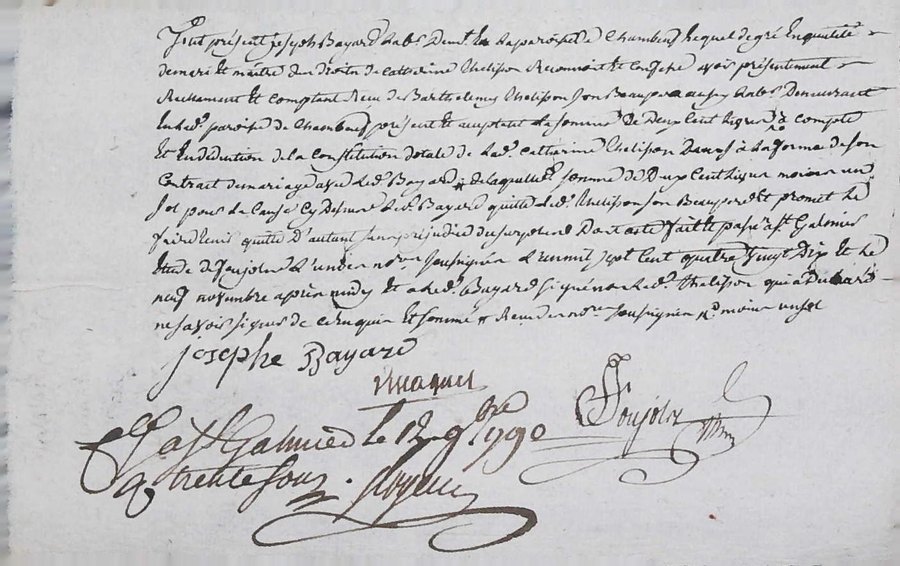 fut présent joseph Bayard lab.r Demt. en la paroisse de Chambeuf lequel de gré En qualité
de mari et maître des droits de catherine thelisson Reconnoit et confesse avoir présentement
Réellement et comptant Reçu de Barthelemy thelisson son Beaupere aussy lab.r Demeurant
en lad.e paroisse de Chambeuf présent et acceptant la somme De Deux Cent livres à compte
Et En déduction de la Constitution dotale de lad.e catherine thelisson à la forme de son
Contrat de mariage avec led.t Bayard de laquelle somme de Deux Cent livres moins un
sol pour la Cause Cy Dessus led.t Bayard quitte led.t thelisson son Beaupere Et promet le
faire tenir quitte D'autant sans préjudice du surplus Dont acte fait et passé a st. Galmier
étude de soujolin L'un des no.res soussignés L'an mil sept Cent quatre Vingt Dix et le
neuf novembre après midy Et a led.t Bayard signé non led.t thelisson qui a Declaré
ne savoir signer de ce Enquis Et sommé Reçu des no.res soussignés moins un sol
josephe Bayard
a st. Galmier le 12 9bre 1790
trente sous